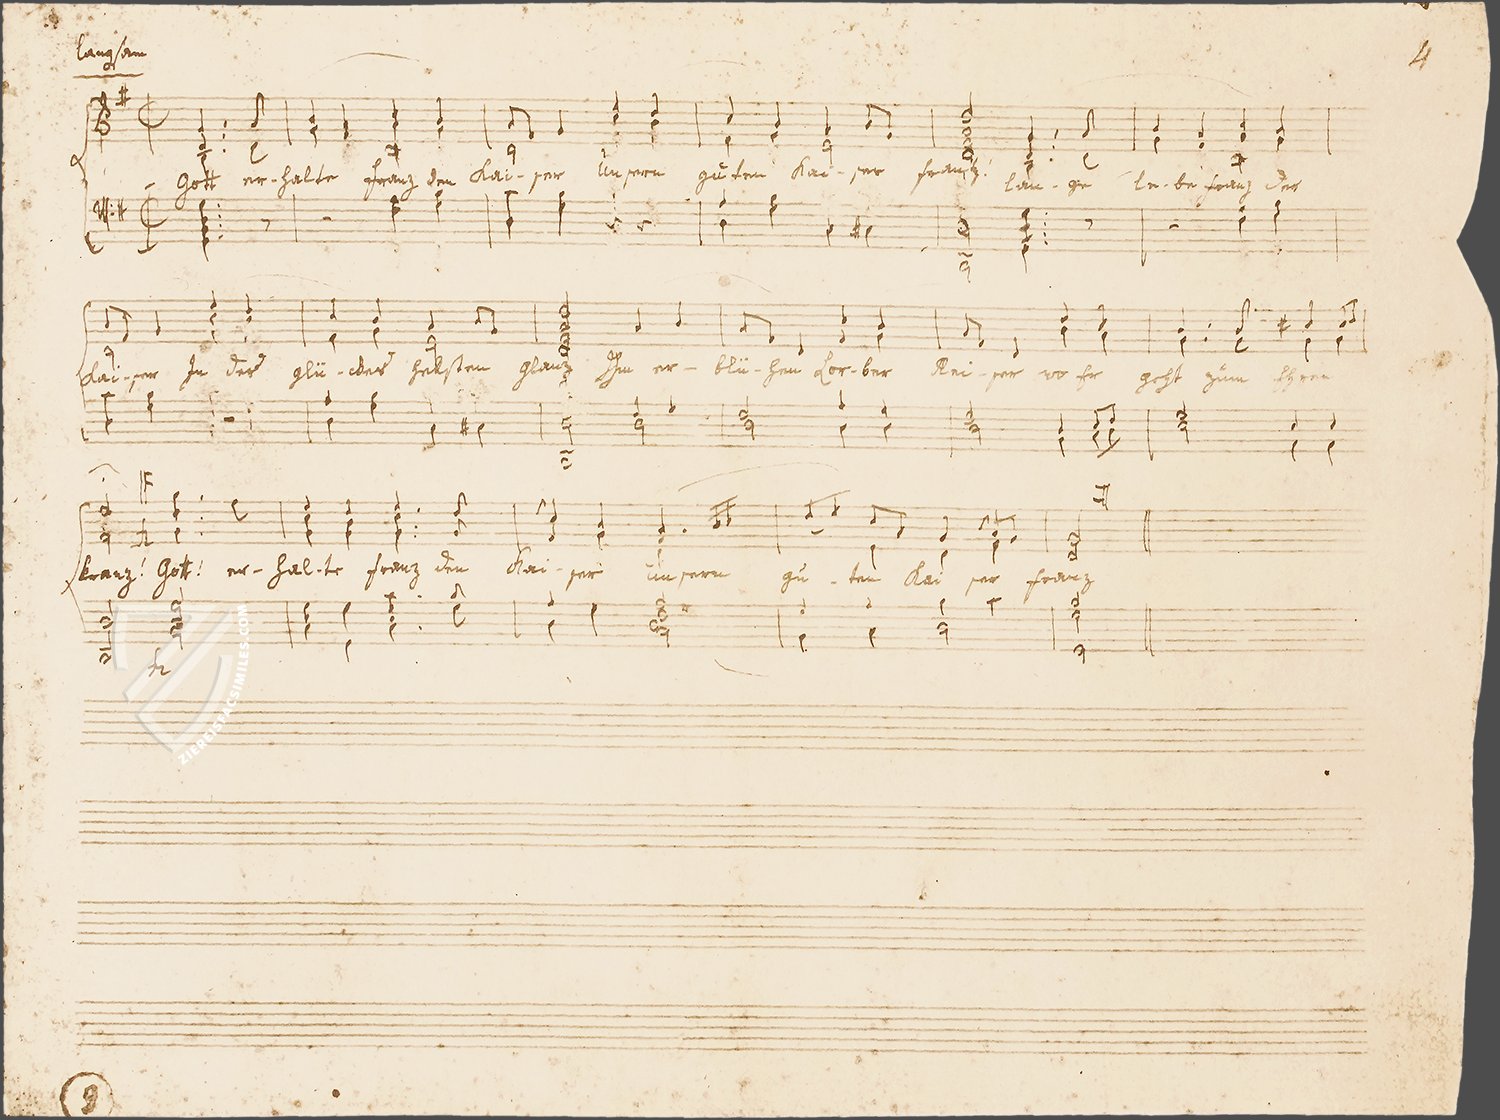 langsam
4
Gott er-halte franz den Kai-ser Unsern guten Kai-ser franz! lan-ge le-be franz der
Kai-ser In des glü-ckes hellsten glanz Ihm er-blühen Lor-ber Rei-ser wo Er geht zum Ehren
kranz! Gott! er-hal-te franz den Kai-ser unsern gu-ten Kai ser franz
ZIEREISFACSIMILES.COM
9